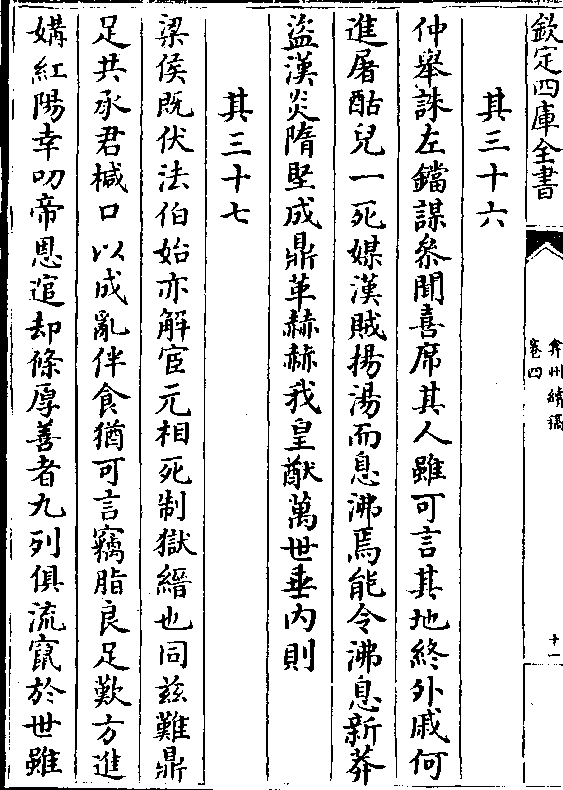 欽定四庫全書
弇州續稿
卷四
十一
其三十六
仲舉誅左鐺謀叅聞喜席其人雖可言其地終外戚何
進屠酤兒一死媒漢賊揚湯而息沸焉能令沸息新莽
盜漢炎隋堅成鼎革赫赫我皇猷萬世垂内則
其三十七
梁侯既伏法伯始亦解宦元相死制獄縉也同兹難鼎
足共承君椷口以成亂伴食猶可言竊脂良足歎方進
媾紅陽幸叨帝恩逭却條厚善者九列俱流竄於世雖